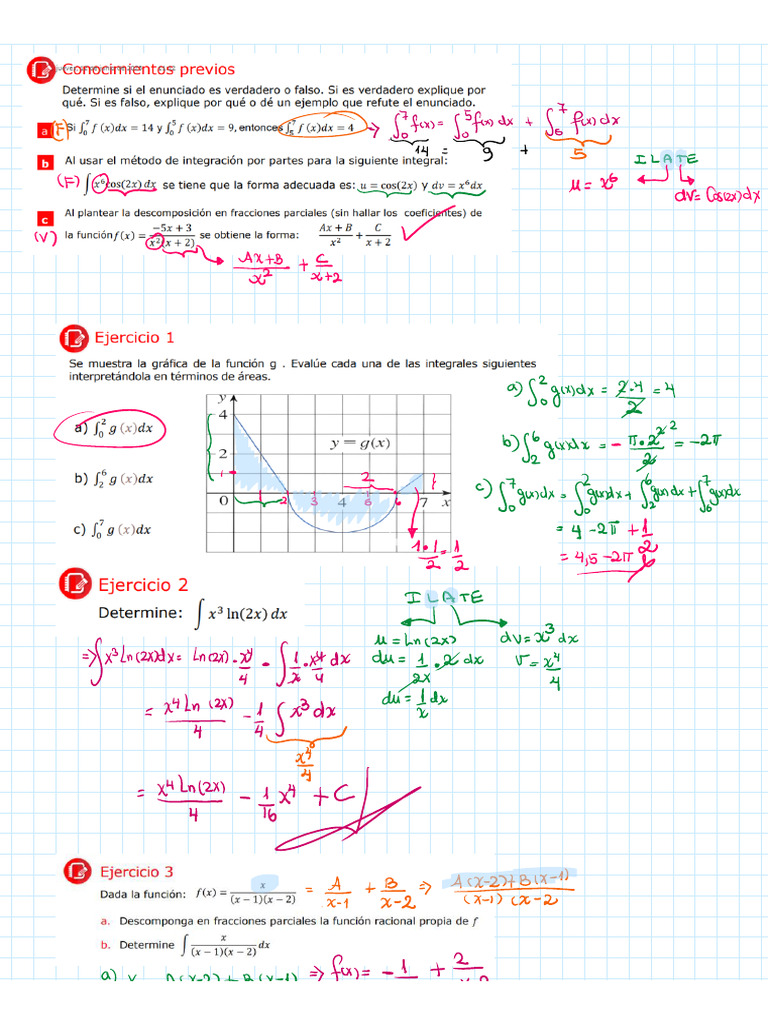 Conocimientos previos
Determine si el enunciado es verdadero o falso. Si es verdadero explique por
qué. Si es falso, explique por qué o dé un ejemplo que refute el enunciado.
a (F) Si ∫₀⁷ f(x)dx = 14 y ∫₀⁵ f(x)dx = 9, entonces ∫₅⁷ f(x)dx = 4 → ∫₀⁷ f(x) = ∫₀⁵ f(x)dx + ∫₅⁷ f(x)dx
14 = 9 + 5
b Al usar el método de integración por partes para la siguiente integral: ILATE
(F) ∫ x⁶ cos(2x) dx se tiene que la forma adecuada es: u = cos(2x) y dv = x⁶dx u = x⁶ dv = Cos(2x)dx
c Al plantear la descomposición en fracciones parciales (sin hallar los coeficientes) de
(V) la función f(x) = (−5x + 3)/(x²(x + 2)) se obtiene la forma: (Ax + B)/x² + C/(x + 2) ✓
(Ax+B)/x² + C/(x+2)
Ejercicio 1
Se muestra la gráfica de la función g . Evalúe cada una de las integrales siguientes
interpretándola en términos de áreas.
a) ∫₀² g (x)dx
b) ∫₂⁶ g (x)dx
c) ∫₀⁷ g (x)dx
y
4
2
1
y = g(x)
2
1
0 1 2 3 4 5 6 7 x
(1·1)/2 = 1/2
a) ∫₀² g(x)dx = (2·4)/2 = 4
b) ∫₂⁶ g(x)dx = − (π·2²)/2 = −2π
c) ∫₀⁷ g(x)dx = ∫₀² g(x)dx + ∫₂⁶ g(x)dx + ∫₆⁷ g(x)dx
= 4 − 2π + 1/2
= 4,5 − 2π
Ejercicio 2
Determine: ∫ x³ ln(2x) dx
ILATE
u = Ln(2x) dv = x³ dx
du = 1/2x · 2 dx v = x⁴/4
du = 1/x dx
⇒ ∫ x³ Ln(2x)dx = Ln(2x) · x⁴/4 − ∫ 1/x · x⁴/4 dx
= x⁴ Ln(2x)/4 − 1/4 ∫ x³ dx
x⁴/4
= x⁴ Ln(2x)/4 − 1/16 x⁴ + C
Ejercicio 3
Dada la función: f(x) = x/((x − 1)(x − 2)) = A/(x-1) + B/(x-2) ⇒ (A(x-2)+B(x-1))/((x-1)(x-2
a. Descomponga en fracciones parciales la función racional propia de f
b. Determine ∫ x/((x − 1)(x − 2)) dx
a) x A(x-2) + B(x-1) ⇒ f(x) = −1 + 2